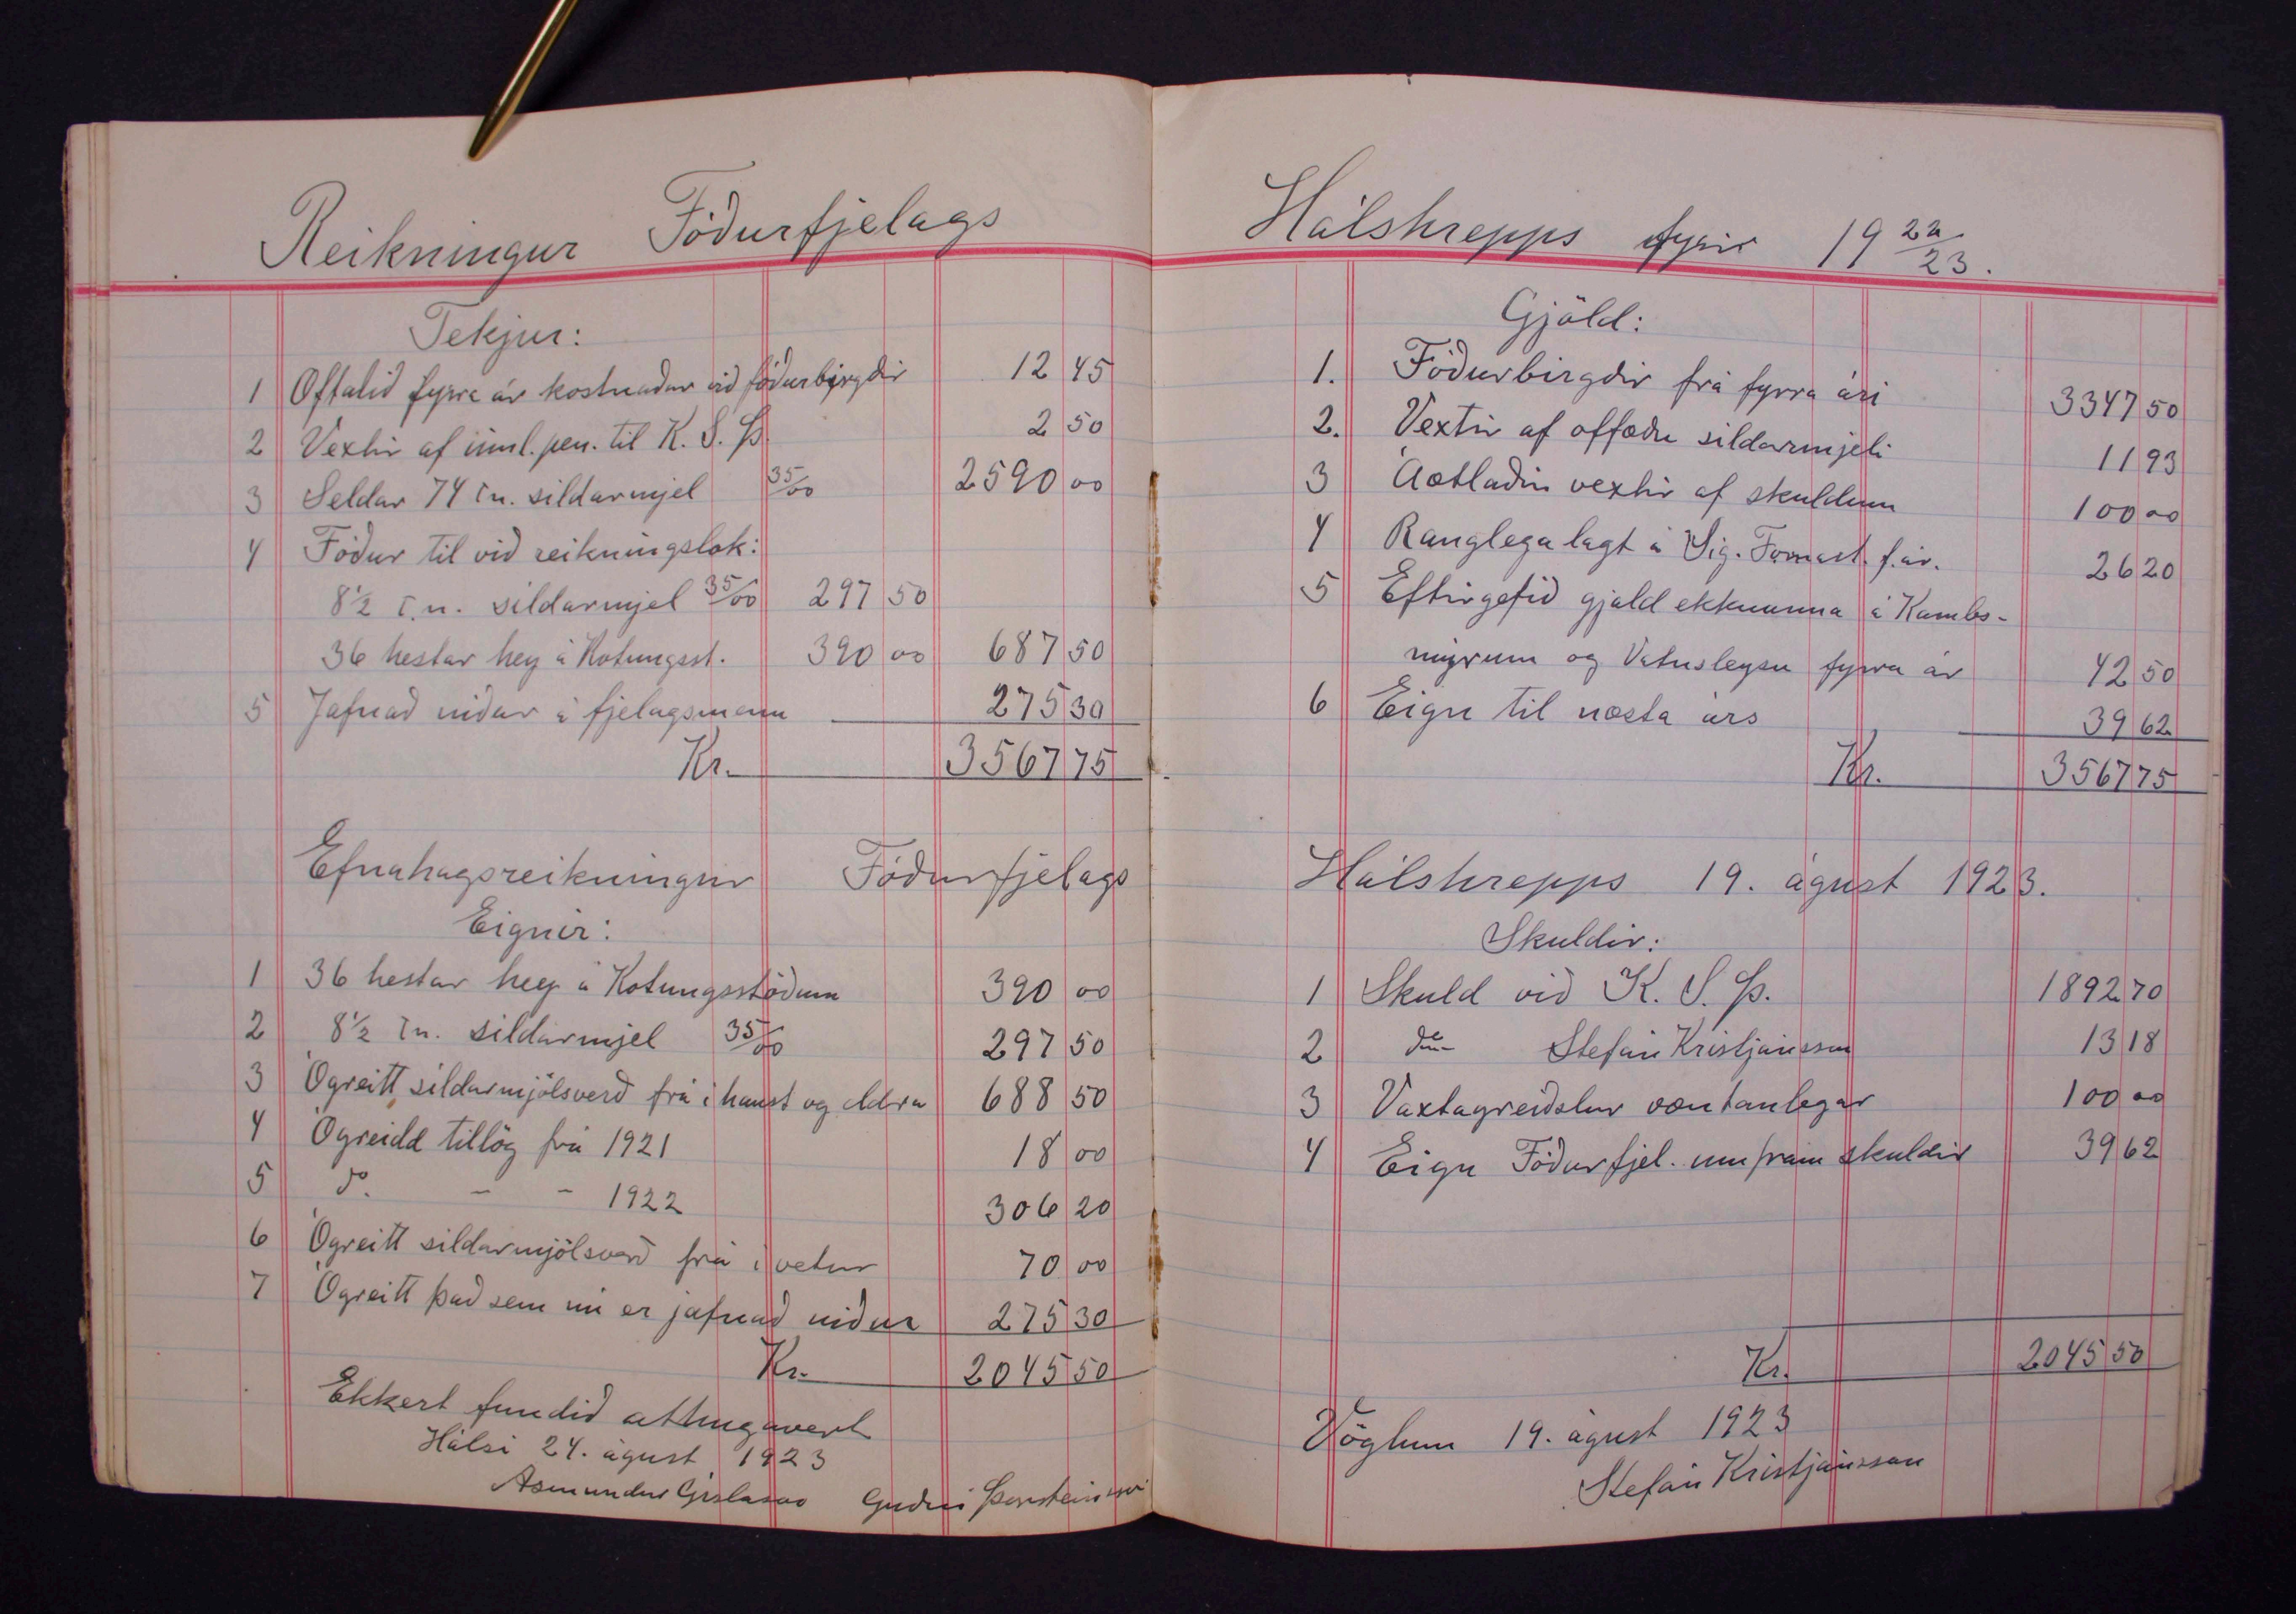 Reikningur Fóðurfjelags
Tekjur:
1 Oftalið fyrra ár kostnaður við fóðurbirgðir 12 45
2 Vextir af innl. pen. til K. S. Þ. 2 50
3 Seldar 74 tn. síldarmjel 35/00 2590 00
4 Fóður til við reikningslok:
8½ tn. síldarmjel 35/00 297 50
36 hestar hey á Kotungsst. 390 00 687 50
5 Jafnað niður á fjelagsmenn 275 30
Kr. 3567 75
Efnahagsreikningur Fóðurfjelags
Eignir:
1 36 hestar hey á Kotungsstöðum 390 00
2 8½ tn. síldarmjel 35/00 297 50
3 Ógreitt síldarmjölsverð frá í haust og eldra 688 50
4 Ógreidd tillög frá 1921 18 00
5 do. - - 1922 306 20
6 Ógreitt síldarmjölsverð frá í vetur 70 00
7 Ógreitt það sem nú er jafnað niður 275 30
Kr. 2045 50
Ekkert fundið athugavert
Hálsi 24. ágúst 1923
Ásmundur Gíslason Guðni Þorsteinsson
Hálshrepps fyrir 19 22/23.
Gjöld:
1. Fóðurbirgðir frá fyrra ári 3347 50
2. Vextir af síldarmjeli 11 93
3 Áætlaðir vextir af skuldum 100 00
4 Ranglega lagt á Sig. f. ár. 26 20
5 Eftirgefið gjald ekknanna á Kambs-
mýrum og Vatnsleysu fyrra ár 42 50
6 Eign til næsta árs 39 62
Kr. 3567 75
Hálshrepps 19. ágúst 1923.
Skuldir:
1 Skuld við K. S. Þ. 1892 70
2 do Stefán Kristjánsson 13 18
3 Vaxtagreiðslur væntanlegar 100 00
4 Eign Fóðurfjel. umfram skuldir 39 62
Kr. 2045 50
Vöglum 19. ágúst 1923
Stefán Kristjánsson